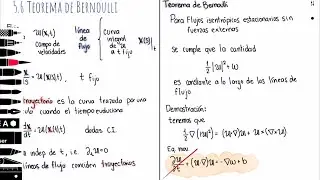 5.6 TEOREMA DE BERNOULLI
u(x,t)
campo de
velocidades
línea
de
flujo
curva
integral
de u
a t fijo
x(s)
= u(x,t)
t fijo
trayectoria es la curva trazada por una
cuando el tiempo evoluciona
= u(x(t),t) dados C.I.
indep de t, i.e. ∂ₜu=0
líneas de flujo coinciden trayectorias
Teorema de Bernoulli
Para flujos isentrópicos estacionarios sin
fuerzas externas
se cumple que la cantidad
1/2 |u|² + w
es constante a lo largo de las líneas de
flujo
Demostración:
tenemos que
1/2 ∇(|u|²) = (u·∇)u + u × (∇×u)
Eq. mov
∂u/∂t + (u·∇)u = -∇w + b